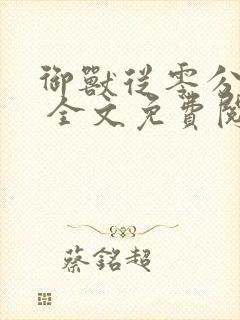 御獸從零分
全文免費閱
蔡銘超